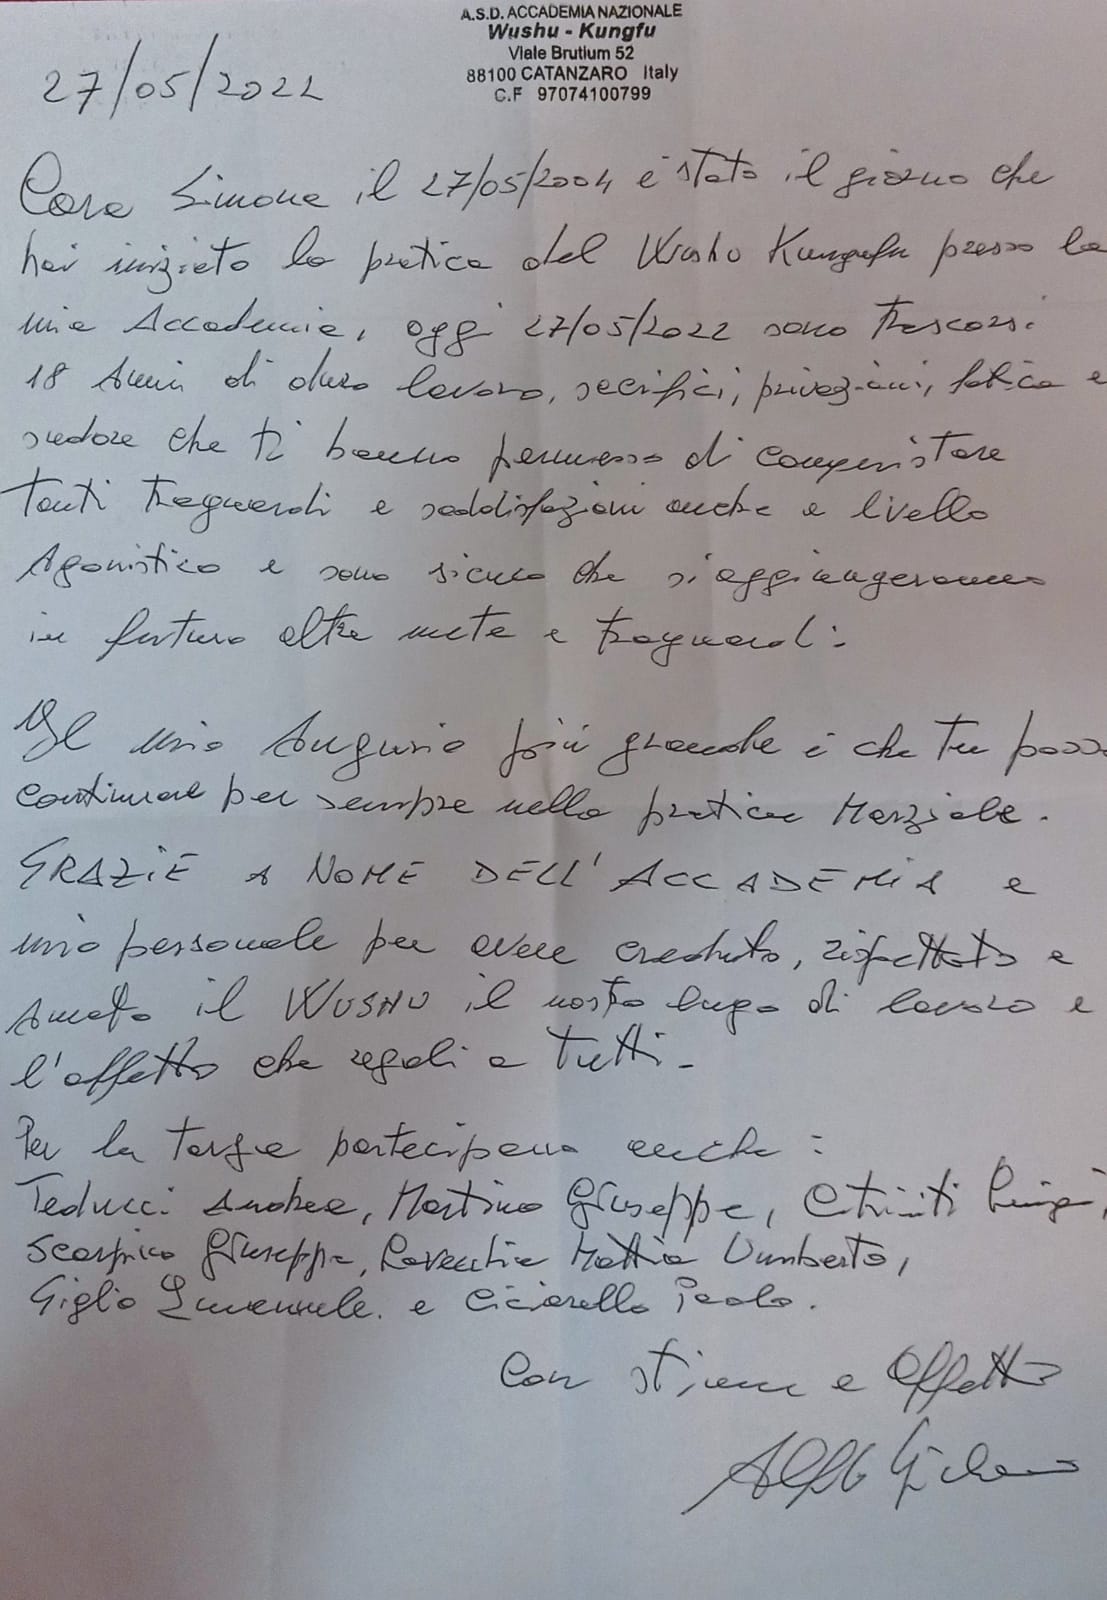 A.S.D. ACCADEMIA NAZIONALE
Wushu - Kungfu
Viale Brutium 52
88100 CATANZARO Italy
C.F 97074100799
27/05/2022
Caro Simone il 27/05/2004 è stato il giorno che
hai iniziato la pratica del Wushu Kungfu presso la
mia Accademia, oggi 27/05/2022 sono trascorsi
18 Anni di duro lavoro, sacrifici, privazioni, fatica e
sudore che ti hanno permesso di conquistare
tanti traguardi e soddisfazioni anche a livello
Agonistico e sono sicuro che si aggiungeranno
in futuro altre mete e traguardi.
Il mio Augurio più grande è che tu possa
continuare per sempre nella pratica Marziale.
GRAZIE A NOME DELL'ACCADEMIA e
mio personale per avere creduto, rispettato e
Amato il WUSHU il nostro luogo di lavoro e
l'affetto che regali a tutti -
Per la targa partecipano anche :
Teducci Andrea, Martino Giuseppe, Citriniti Luigi,
Scarpino Giuseppe, Mattia Umberto,
Giglio Emanuele. e Ciciarello Paolo.
Con stima e Affetto